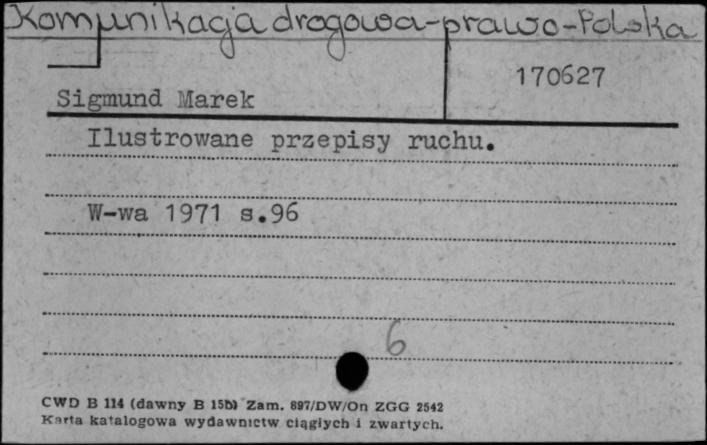 Komunikacja drogowa-prawo-Polska
170627
Sigmund Marek
Ilustrowane przepisy ruchu.
W-wa 1971 s.96
6
CWD B 114 (dawny B 15b) Zam. 897/DW/On ZGG 2542
Karta katalogowa wydawnictw ciągłych i zwartych.